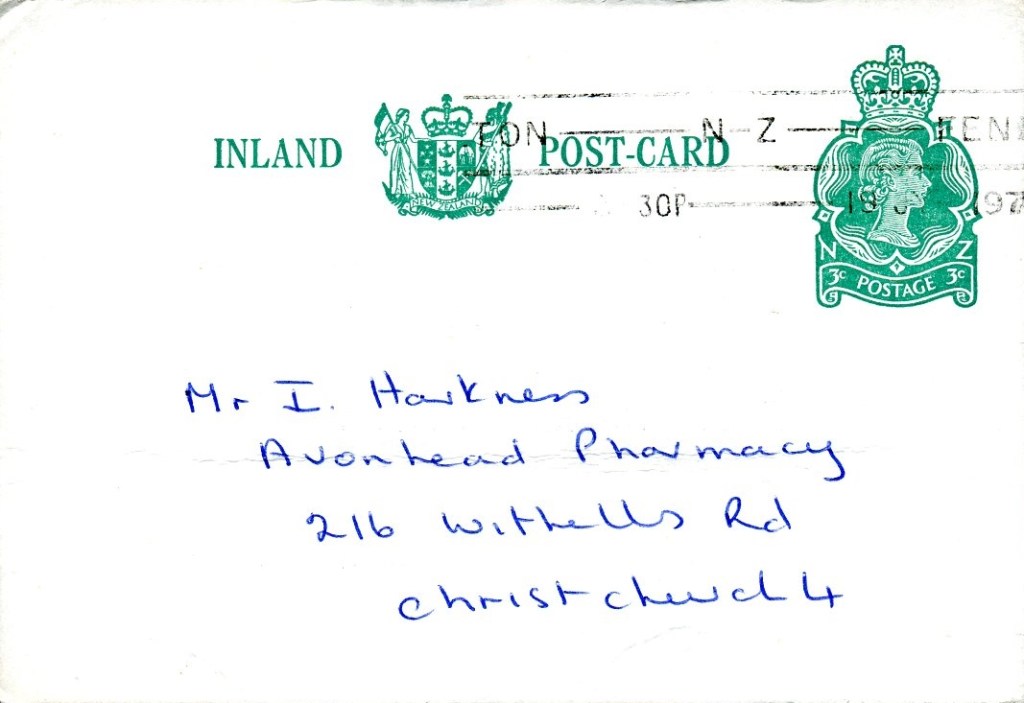 INLAND POST-CARD
NEW ZEALAND
TON N Z
30P 19
N Z
3c POSTAGE 3c
Mr I. Harkness
Avonhead Pharmacy
216 Withells Rd
Christchurch 4